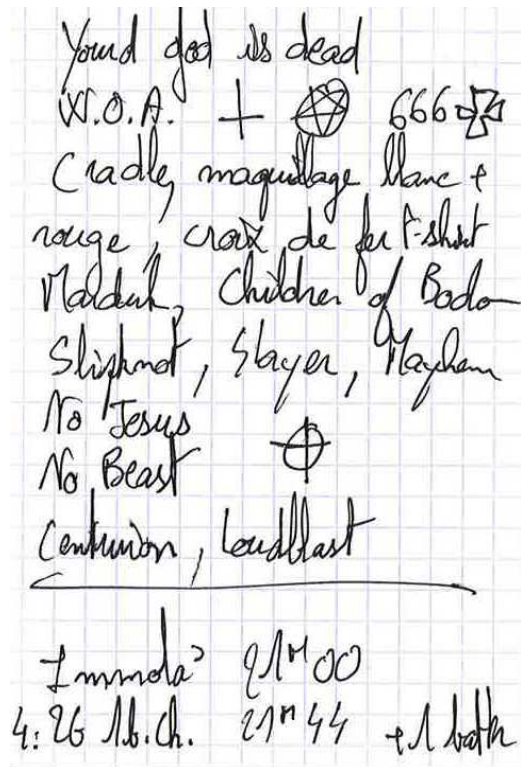 Yourd god is dead
W.O.A. 666
Cradle, maquillage blanc +
rouge, croix de fer T-shirt
Marduk, Children of Bodo
Slipknot, Slayer, Mayhem
No Jesus
No Beast
Centurion, Loudblast
Immola° 21H00
4:26 1b.ch. 21H44 +1 batt